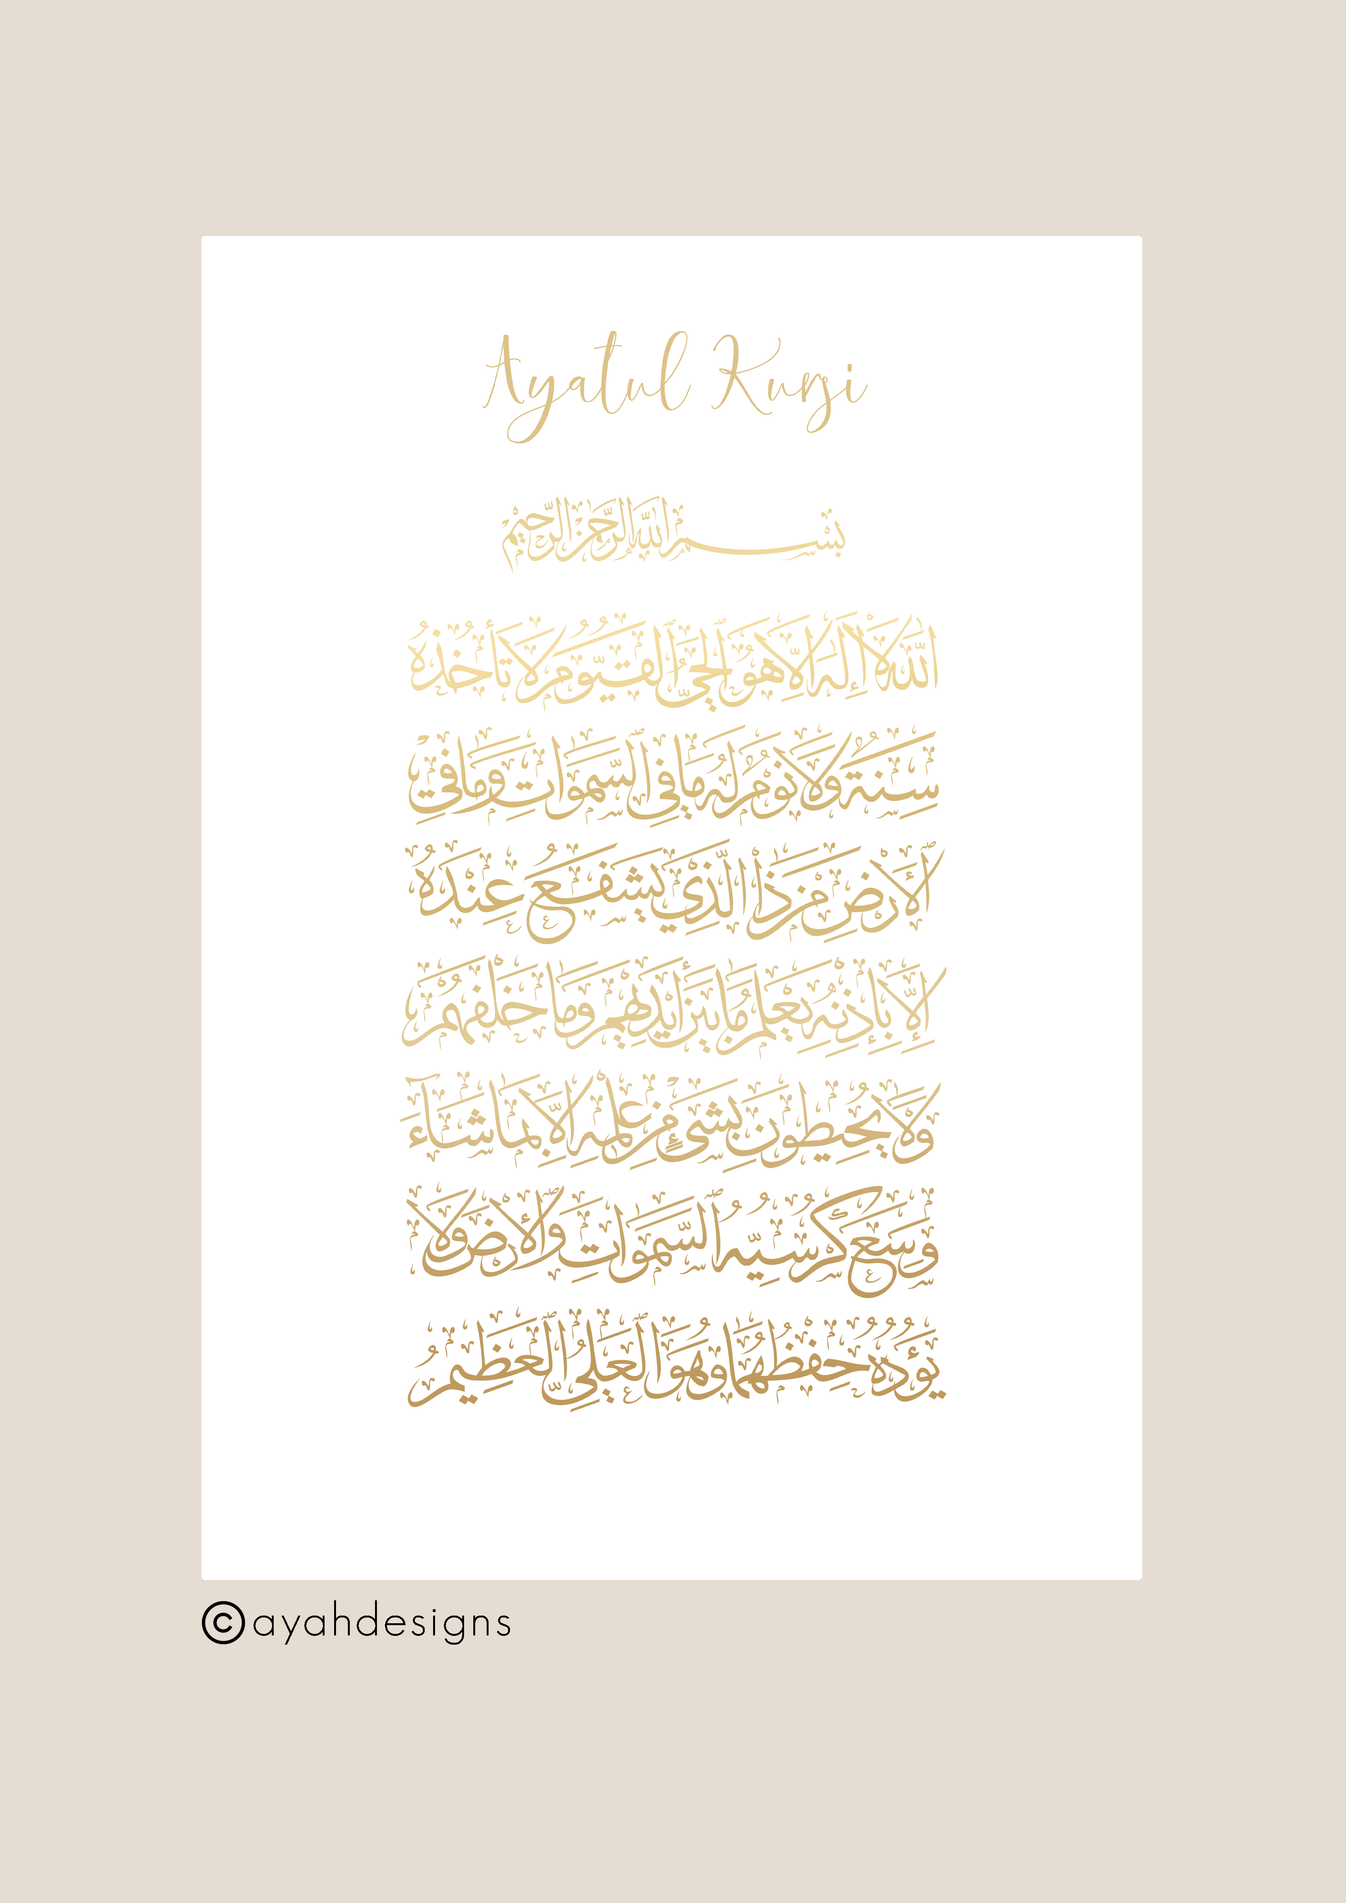 Ayatul Kursi
بِسْمِ اللَّهِ الرَّحْمَٰنِ الرَّحِيمِ
اللَّهُ لَا إِلَٰهَ إِلَّا هُوَ الْحَيُّ الْقَيُّومُ لَا تَأْخُذُهُ
سِنَةٌ وَلَا نَوْمٌ لَهُ مَا فِي السَّمَوَاتِ وَمَا فِي
الْأَرْضِ مَنْ ذَا الَّذِي يَشْفَعُ عِنْدَهُ
إِلَّا بِإِذْنِهِ يَعْلَمُ مَا بَيْنَ أَيْدِيهِمْ وَمَا خَلْفَهُمْ
وَلَا يُحِيطُونَ بِشَيْءٍ مِنْ عِلْمِهِ إِلَّا بِمَا شَاءَ
وَسِعَ كُرْسِيُّهُ السَّمَوَاتِ وَالْأَرْضَ وَلَا
يَئُودُهُ حِفْظُهُمَا وَهُوَ الْعَلِيُّ الْعَظِيمُ
©ayahdesigns